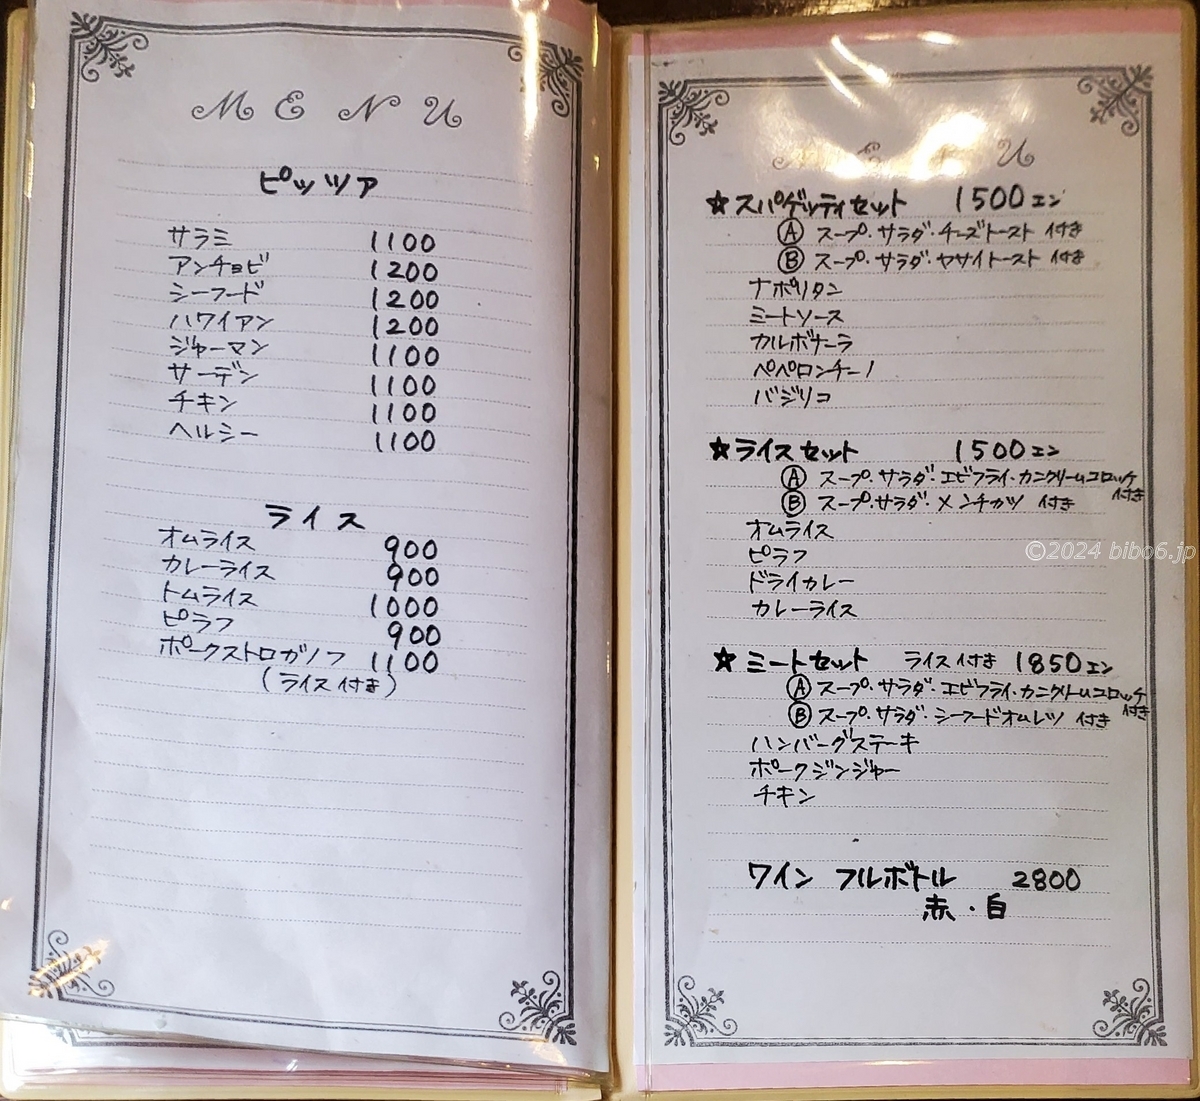 MENU
ピッツァ
サラミ 1100
アンチョビ 1200
シーフード 1200
ハワイアン 1200
ジャーマン 1100
サーデン 1100
チキン 1100
ヘルシー 1100
ライス
オムライス 900
カレーライス 900
トムライス 1000
ピラフ 900
ポークストロガノフ 1100
(ライス付き)
MENU
☆スパゲッティセット 1500エン
Ⓐ スープ・サラダ・チーズトースト 付き
Ⓑ スープ・サラダ・ヤサイトースト 付き
ナポリタン
ミートソース
カルボナーラ
ペペロンチーノ
バジリコ
☆ライスセット 1500エン
Ⓐ スープ・サラダ・エビフライ・カニクリームコロッケ
付き
Ⓑ スープ・サラダ・メンチカツ 付き
オムライス
ピラフ
ドライカレー
カレーライス
☆ミートセット ライス付き 1850エン
Ⓐ スープ・サラダ・エビフライ・カニクリームコロッケ
付き
Ⓑ スープ・サラダ・シーフードオムレツ 付き
ハンバーグステーキ
ポークジンジャー
チキン
ワイン フルボトル 2800
赤・白
©2024 bibo6.jp